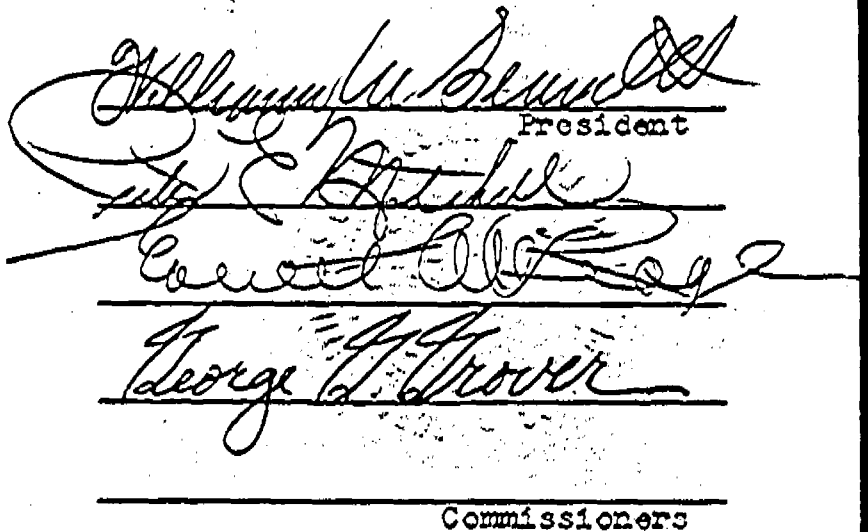 William M. Bennett
President
Peter E. Mitchell
George G. Grover
Commissioners